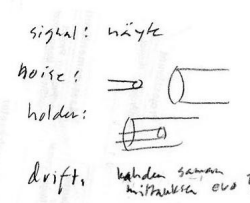 signal: näyte
noise:
holder:
drift, kahden saman
mittauksen ero ?